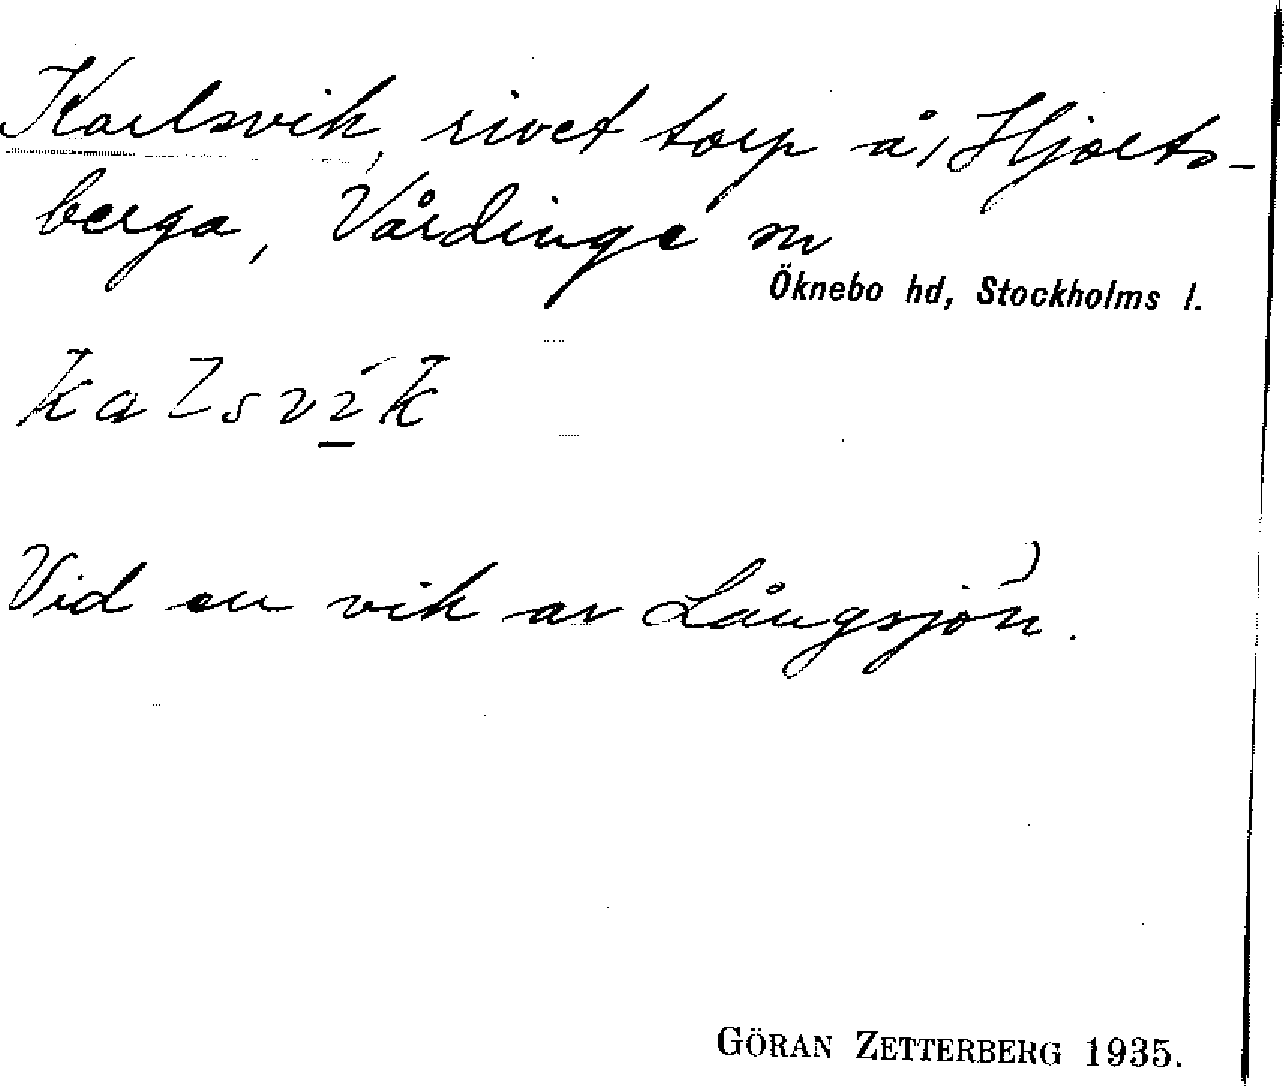 Karlsvik, rivet torp å, Hjorts-
berga, Vårdinge sn
Öknebo hd, Stockholms l.
kalsvík
Vid en vik av Långsjön.
GÖRAN ZETTERBERG 1935.